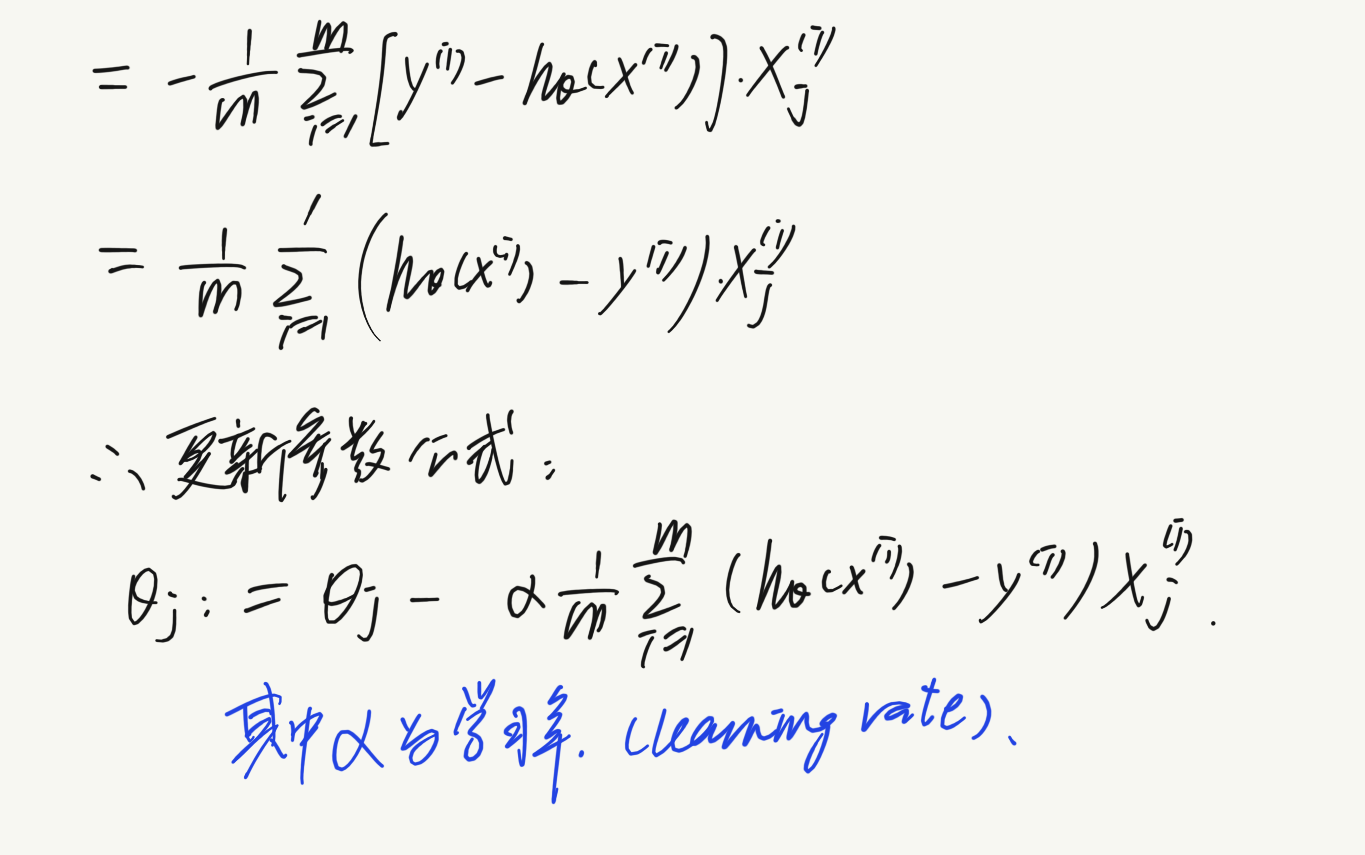 = - 1/m ∑_{i=1}^{m} [y^{(i)} - h_θ(x^{(i)})] · x_j^{(i)}
= 1/m ∑_{i=1}^{1} (h_θ(x^{(i)}) - y^{(i)}) · x_j^{(i)}
∴ 更新参数公式:
θ_j := θ_j - α 1/m ∑_{i=1}^{m} (h_θ(x^{(i)}) - y^{(i)}) x_j^{(i)}.
其中α为学习率. (learning rate)、